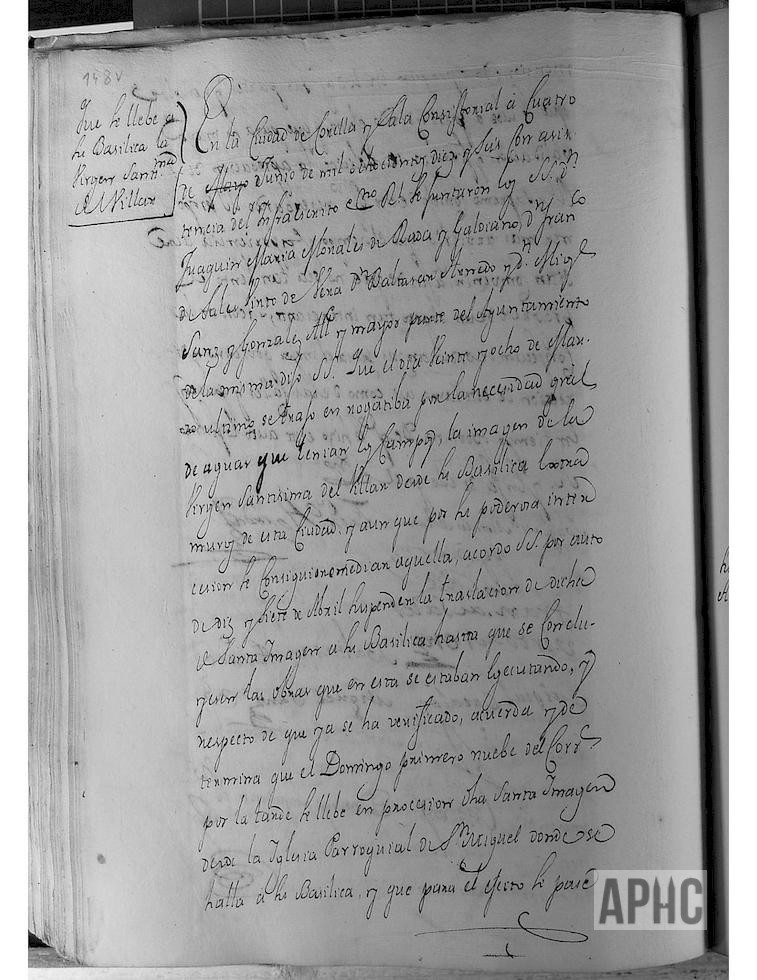 148v
Que se llebe a
su Basilica la
Virgen Santma
del Villar
En la Ciudad de Corella y Sala Consistorial a Cuatro
de Mayo Junio de mil ochocientos diez y seis Con asis
tencia del infrascrito essno Rl se juntaron los SS. Dn
Juaquin Maria Morales de Rada y Galdiano, Dn Franco
de Sales Pinto de Vera Dn Baltasar y Dn Migl
Sanz y Gonzalez Alfz y mayor parte del Ayuntamiento
de la misma dijo SS. Que el dia Veinte y ocho de Mar-
zo ultimo se trajo en rogatiba por la necesidad gral
de aguas que tenian los Campos la imagen de la
Virgen Santisima del Villar desde su Basilica Extra
muros de esta Ciudad, y aun que por su poderosa inter
cesion se Consiguio remedian aquella, acordo SS. por auto
de diez y siete de Abril suspender la traslacion de dicha
Santa Imagen a su Basilica hasta que se Conclu-
yesen las obras que en esta se estaban egecutando, y
respecto de que ya se ha verificado, acuerda y de
termina que el Domingo primero nuebe del Corrte
por la tarde se llebe en procesion dha Santa Imagen
desde la Iglesia Parroquial de Sn Miguel donde se
halla a su Basilica, y que para el efecto se pase
APHC